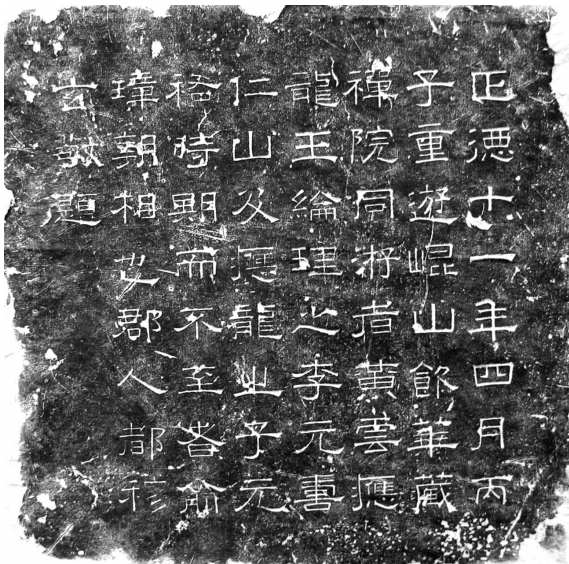 正德十一年四月丙
子重遊崐山飲華藏
禪院同游者黃雲應
龍王綸理之李元壽
仁山及應龍之子元
格時期而不至者俞
璋朝相也郡人都穆
玄敬題